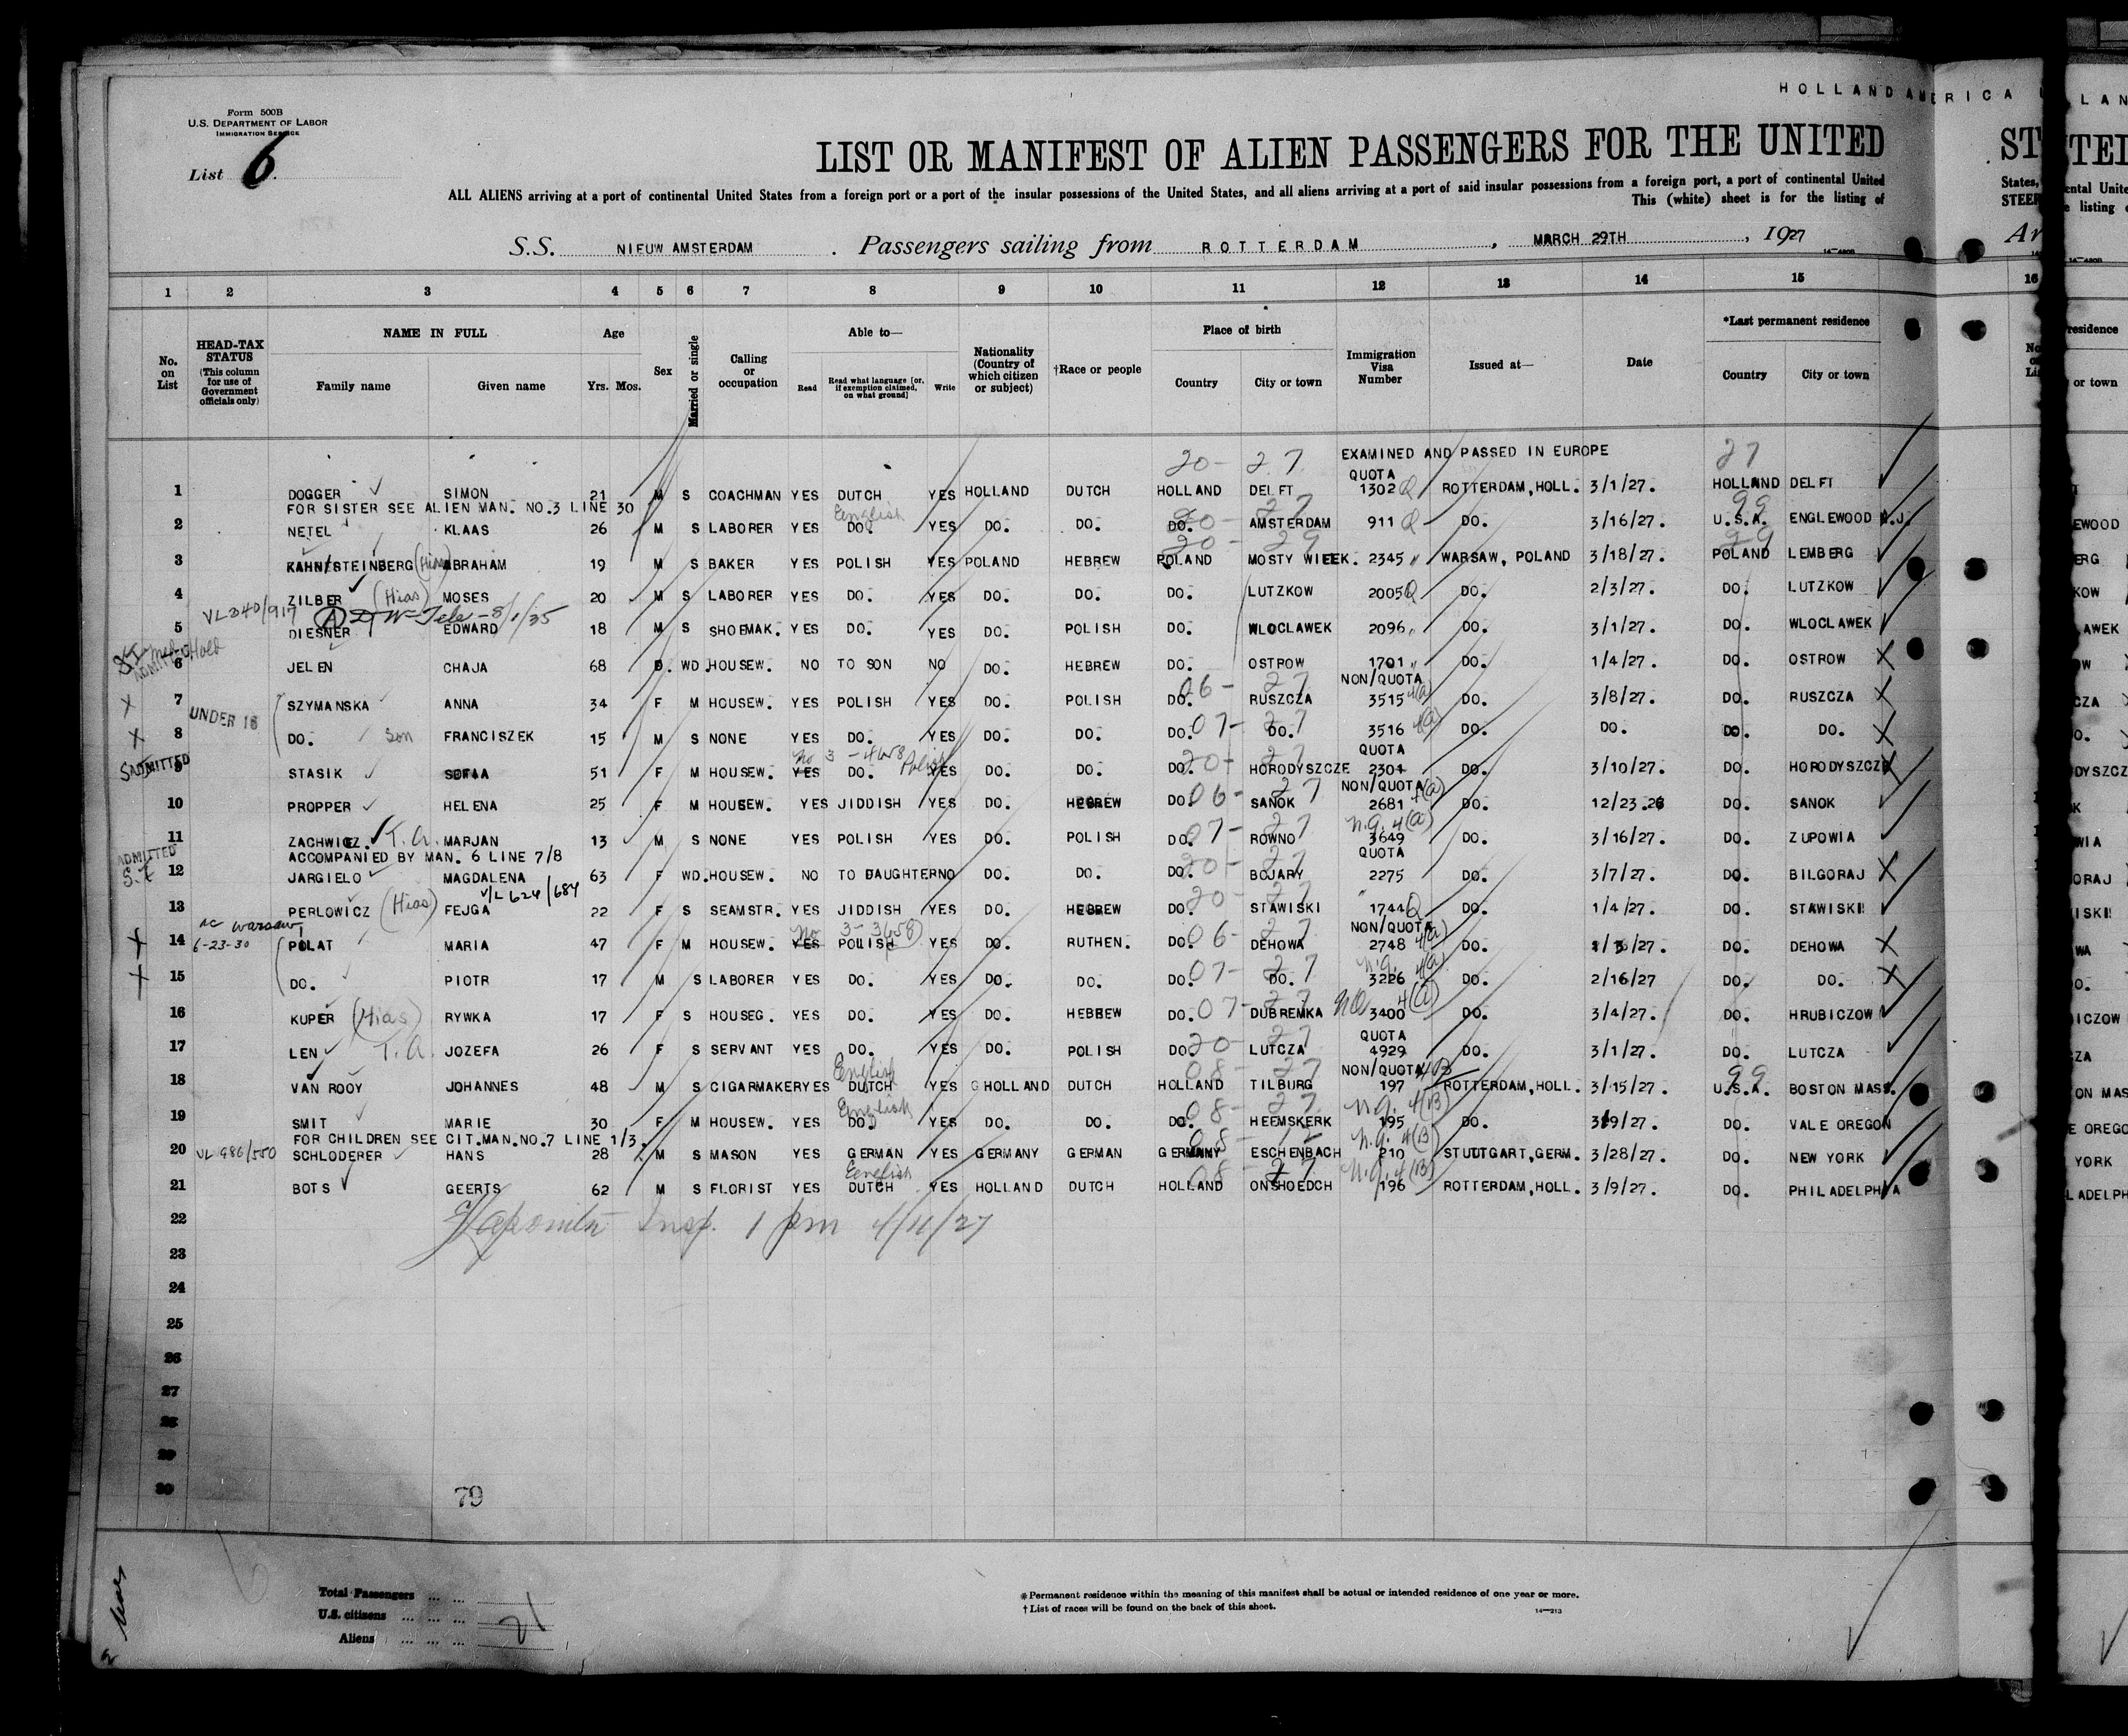 HOLLAND AMERICA
Form 500B
U.S. DEPARTMENT OF LABOR
IMMIGRATION SERVICE
List 6
LIST OR MANIFEST OF ALIEN PASSENGERS FOR THE UNITED
ALL ALIENS arriving at a port of continental United States from a foreign port or a port of the insular possessions of the United States, and all aliens arriving at a port of said insular possessions from a foreign port, a port of continental United
This (white) sheet is for the listing of
S.S. NIEUW AMSTERDAM. Passengers sailing from ROTTERDAM, MARCH 29TH, 1927
1 2 3 4 5 6 7 8 9 10 11 12 13 14 15
No. on List
HEAD-TAX STATUS (This column for use of Government officials only)
NAME IN FULL
Family name Given name
Age
Yrs. Mos.
Sex
Married or single
Calling or occupation
Able to—
Read Read what language [or, if exemption claimed, on what ground] Write
Nationality (Country of which citizen or subject)
†Race or people
Place of birth
Country City or town
Immigration Visa Number
Issued at—
Date
*Last permanent residence
Country City or town
20- 27 EXAMINED AND PASSED IN EUROPE 27
QUOTA
1 DOGGER SIMON 21 M S COACHMAN YES DUTCH YES HOLLAND DUTCH HOLLAND DELFT 1302 Q ROTTERDAM, HOLL. 3/1/27. HOLLAND DELFT
FOR SISTER SEE ALIEN MAN. NO.3 LINE 30 English 20- 27 99
2 NETEL KLAAS 26 M S LABORER YES DO. YES DO. DO. DO. AMSTERDAM 911 Q DO. 3/16/27. U.S.A. ENGLEWOOD N.J.
20- 29 29
3 KAHN/STEINBERG (Hias) ABRAHAM 19 M S BAKER YES POLISH YES POLAND HEBREW POLAND MOSTY WIEEK. 2345 " WARSAW, POLAND 3/18/27. POLAND LEMBERG
4 ZILBER (Hias) MOSES 20 M S LABORER YES DO. YES DO. DO. DO. LUTZKOW 2005 Q DO. 2/3/27. DO. LUTZKOW
VL340/917 8/1/35
5 DIESNER EDWARD 18 M S SHOEMAK. YES DO. YES DO. POLISH DO. WLOCLAWEK 2096 " DO. 3/1/27. DO. WLOCLAWEK
6 JELEN CHAJA 68 WD. HOUSEW. NO TO SON NO DO. HEBREW DO. OSTROW 1701 " DO. 1/4/27. DO. OSTROW X
06- 27 NON/QUOTA
X 7 SZYMANSKA ANNA 34 F M HOUSEW. YES POLISH YES DO. POLISH DO. RUSZCZA 3515 4(a) DO. 3/8/27. DO. RUSZCZA X
UNDER 16
X 8 DO. Son FRANCISZEK 15 M S NONE YES DO. YES DO. DO. DO. 07- 27 DO. 3516 4(a) DO. DO. DO. DO. X
No 3-4658 Polish 20- 27 QUOTA
ADMITTED 9 STASIK SOFIA 51 F M HOUSEW. YES DO. YES DO. DO. DO. HORODYSZCZE 2301 DO. 3/10/27. DO. HORODYSZCZE
NON/QUOTA
10 PROPPER HELENA 25 F M HOUSEW. YES JIDDISH YES DO. HEBREW DO. 06- 27 SANOK 2681 4(a) DO. 12/23.26 DO. SANOK
N.Q. 4(a)
11 ZACHWIEZ. T.A. MARJAN 13 M S NONE YES POLISH YES DO. POLISH DO. 07- 27 ROWNO 3649 DO. 3/16/27. DO. ZUPOWIA
ACCOMPANIED BY MAN. 6 LINE 7/8 QUOTA
ADMITTED S.I. 12 JARGIELO MAGDALENA 63 F WD. HOUSEW. NO TO DAUGHTER NO DO. DO. DO. 20- 27 BOJARY 2275 DO. 3/7/27. DO. BILGORAJ X
V/L 624/684
13 PERLOWICZ (Hias) FEJGA 22 F S SEAMSTR. YES JIDDISH YES DO. HEBREW DO. 20- 27 STAWISKI 1744 Q DO. 1/4/27. DO. STAWISKI
Warsaw No 3-3658 NON/QUOTA
X 14 6-23-30 POLAT MARIA 47 F M HOUSEW. YES POLISH YES DO. RUTHEN. DO. 06- 27 DEHOWA 2748 4(a) DO. /27. DO. DEHOWA X
N.Q. 4(a)
X 15 DO. PIOTR 17 M S LABORER YES DO. YES DO. DO. DO. 07- 27 DO. 3226 DO. 2/16/27 DO. DO. X
NQ 4(a)
16 KUPER (Hias) RYWKA 17 F S HOUSEG. YES DO. YES DO. HEBREW DO. 07- 27 DUBREMKA 3400 DO. 3/4/27. DO. HRUBICZOW
QUOTA
17 LEN T.A. JOZEFA 26 F S SERVANT YES DO. YES DO. POLISH DO. 20- 27 LUTCZA 4929 DO. 3/1/27. DO. LUTCZA
English 08- 27 NON/QUOTA 4B 99
18 VAN ROOY JOHANNES 48 M S CIGARMAKER YES DUTCH YES HOLLAND DUTCH HOLLAND TILBURG 197 ROTTERDAM, HOLL. 3/15/27. U.S.A. BOSTON MASS.
English 08- 27 N.Q. 4(B)
19 SMIT MARIE 30 F M HOUSEW. YES DO. YES DO. DO. DO. HEEMSKERK 195 DO. 3/9/27. DO. VALE OREGON
FOR CHILDREN SEE CIT.MAN.NO.7 LINE 1/3. 08- 12 N.Q. 4(B)
20 VL 986/550 SCHLODERER HANS 28 M S MASON YES GERMAN YES GERMANY GERMAN GERMANY ESCHENBACH 210 STUTTGART, GERM. 3/28/27. DO. NEW YORK
English 08- 27 N.Q. 4(B)
21 BOTS GEERTS 62 M S FLORIST YES DUTCH YES HOLLAND DUTCH HOLLAND ONSHOEDCH 196 ROTTERDAM, HOLL. 3/9/27. DO. PHILADELPHIA
22 Insp. 1 pm 4/11/27
23
24
25
26
27
28
29
30
79
Total Passengers ... ...
U.S. citizens ... ... ... 21
Aliens ... ... ...
* Permanent residence within the meaning of this manifest shall be actual or intended residence of one year or more.
† List of races will be found on the back of this sheet.
14—213